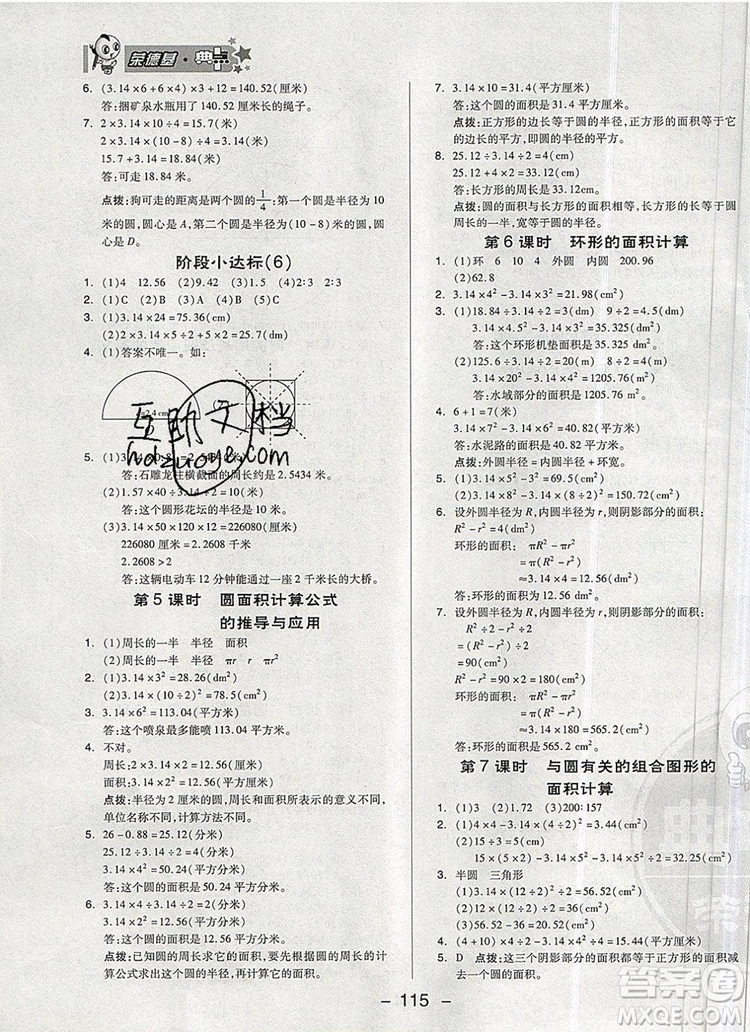 荣德基·典中点
6. (3.14×6+6×4)×4=140.52(厘米)
答:捆矿泉水瓶用了 140.52 厘米长的绳子。
7. 2×3.14×10÷4=15.7(米)
15.7+3.14=18.84(米)
答:可走 18.84 米。
点拨:狗可走的距离是两个圆的1/4:第一个圆是半径为 10
米的圆,圆心是 A。第二个圆是半径为(10-8)米的圆,
圆心是 D。
阶段小达标(6)
1. (1)4 12.56 (2)9.42 (3)1.5 (4)2∶3 2∶3
2. (1)C (2)B (3)A (4)B (5)A
3. (1)3.14×24=75.36(cm)
(2)3.14×5÷2+5×2=25.7(dm)
4. (1)答案不唯一。如:
d=2.4 cm
互助文档
hdzuoye.com
5.
答:石雕龙柱横截面的周长约是 2.5434 米。
(2)1.57×40÷3.14÷2=10(米)
答:这个圆形花坛的半径是 10 米。
(3)3.14×50×120×12=226080(厘米)
226080 厘米=2.2608 千米
2.2608>2
答:这辆电动车 12 分钟能通过一座 2 千米长的大桥。
第 5 课时 圆面积计算公式
的推导与应用
1. (1)周长的一半 半径 面积
(2)周长的一半 半径 πr r πr²
2. (1)3.14×3²=28.26(dm²)
(2)3.14×(10÷2)²=78.5(cm²)
3. 3.14×6²=113.04(平方米)
答:这个喷泉最多能喷 113.04 平方米。
4. 不对。
周长:2×3.14×2=12.56(厘米)
面积:3.14×2²=12.56(平方厘米)
点拨:半径为 2 厘米的圆的周长和面积计算的意义不同,
单位名称不同,计算方法不同。
5. 26-0.88=25.12(分米)
25.12÷3.14÷2=4(分米)
3.14×4²=50.24(平方分米)
答:这个圆的面积是 50.24 平方分米。
6. 12.56÷3.14÷2=2(分米)
3.14×2²=12.56(平方分米)
答:这个圆的面积是 12.56 平方分米。
点拨:已知圆的周长求它的面积,要先根据圆的周长的计
算公式求出这个圆的半径,再计算它的面积。
7. 3.14×10=31.4(平方厘米)
答:这个圆的面积是 31.4 平方厘米。
点拨:正方形的边长等于圆的半径,正方形的面积等于它
的边长的平方,即圆的半径的平方。
8. 25.12÷3.14÷2=4(cm)
25.12+4×2=33.12(cm)
答:长方形的周长是 33.12cm。
点拨:圆的面积与长方形的面积相等,长方形的长等于圆
周长的一半,宽等于圆的半径。
第 6 课时 环形的面积计算
1. (1)环 6 10 4 外圆 内圆 200.96
(2)62.8
2. 3.14×4²-3.14×3²=21.98(cm²)
3. (1)18.84÷3.14÷2=3(dm) 9÷2=4.5(dm)
3.14×4.5²-3.14×3²=35.325(dm²)
答:这个环形机垫面积是 35.325 dm²。
(2)125.6÷3.14÷2=20(m) 8÷2=4(m)
3.14×20²-3.14×4²=1205.76(m²)
答:水域部分的面积是 1205.76 m²。
4. 6+1=7(米)
3.14×7²-3.14×6²=40.82(平方米)
答:水泥路的面积是 40.82 平方米。
点拨:外圆半径=内圆半径+环宽。
6. 设外圆半径为 R,内圆半径为 r,则阴影部分的面积:
环形的面积: πR²-πr²
=π(R²-r²)
答:环形的面积约是
7. 设外圆半径为 R,内圆半径为 r,则阴影部分的面积:
R²÷2-r²÷2
=(R²-r²)÷2
=90(cm²)
环形的面积: πR²-πr²
=π(R²-r²)
≈3.14×180=565.2(cm²)
答:环形的面积约是 565.2 cm²。
第 7 课时 与圆有关的组合图形的
面积计算
1. (1)3 (2)1.72 (3)200∶157
2. (1)4×4-3.14×(4÷2)²=3.44(cm²)
(2)15÷3=5(cm)
15×5-3.14×(5÷2)²×3=16.125(cm²)
3. 半圆 三角形
4. (4+10)×4÷2-3.14×4²÷4=15.44(cm²)
5. D 点拨:这三个阴影部分的面积都是正方形的面积减
去一个圆的面积。
- 115 -
答案圈
MXQE.COM